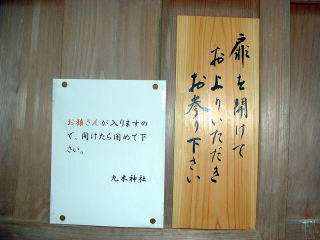 扉を開けて
お上りいただき
お参り下さい
お猿さんが入りますの
で、開けたら閉めて下
さい。
九木神社